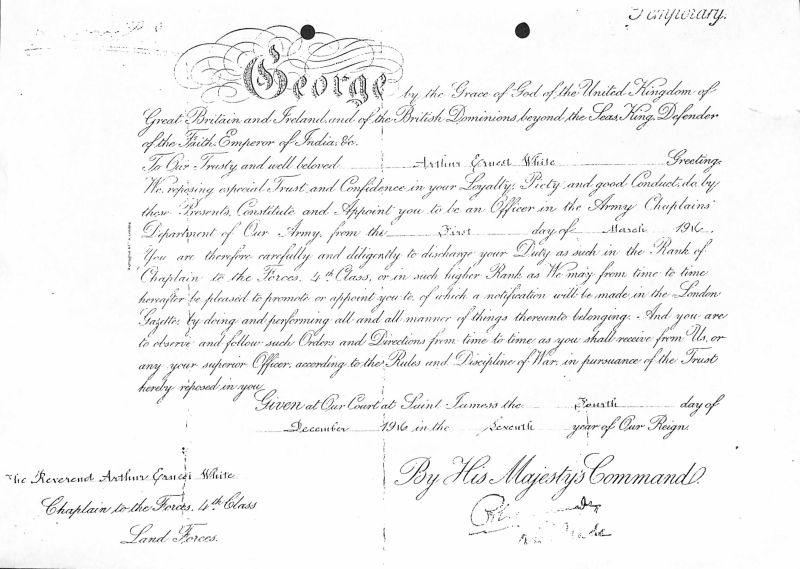 Temporary.
George by the Grace of God of the United Kingdom of
Great Britain and Ireland, and of the British Dominions, beyond the Seas King, Defender
of the Faith, Emperor of India, &c.
To Our Trusty and well beloved Arthur Ernest White Greeting.
We, reposing especial Trust and Confidence in your Loyalty, Piety and good Conduct, do by
these Presents, Constitute and Appoint you to be an Officer in the Army Chaplains'
Department of Our Army, from the First day of March 1916.
You are therefore carefully and diligently to discharge your Duty as such in the Rank of
Chaplain to the Forces, 4th Class, or in such higher Rank as We may from time to time
hereafter be pleased to promote or appoint you to, of which a notification will be made in the London
Gazette, by doing and performing all and all manner of things thereunto belonging. And you are
to observe and follow such Orders and Directions from time to time as you shall receive from Us, or
any your superior Officer, according to the Rules and Discipline of War, in pursuance of the Trust
hereby reposed in you.
Given at Our Court at Saint James's the Fourth day of
December 1916 in the Seventh year of Our Reign.
By His Majesty's Command.
The Reverend Arthur Ernest White
Chaplain to the Forces, 4th Class
Land Forces.